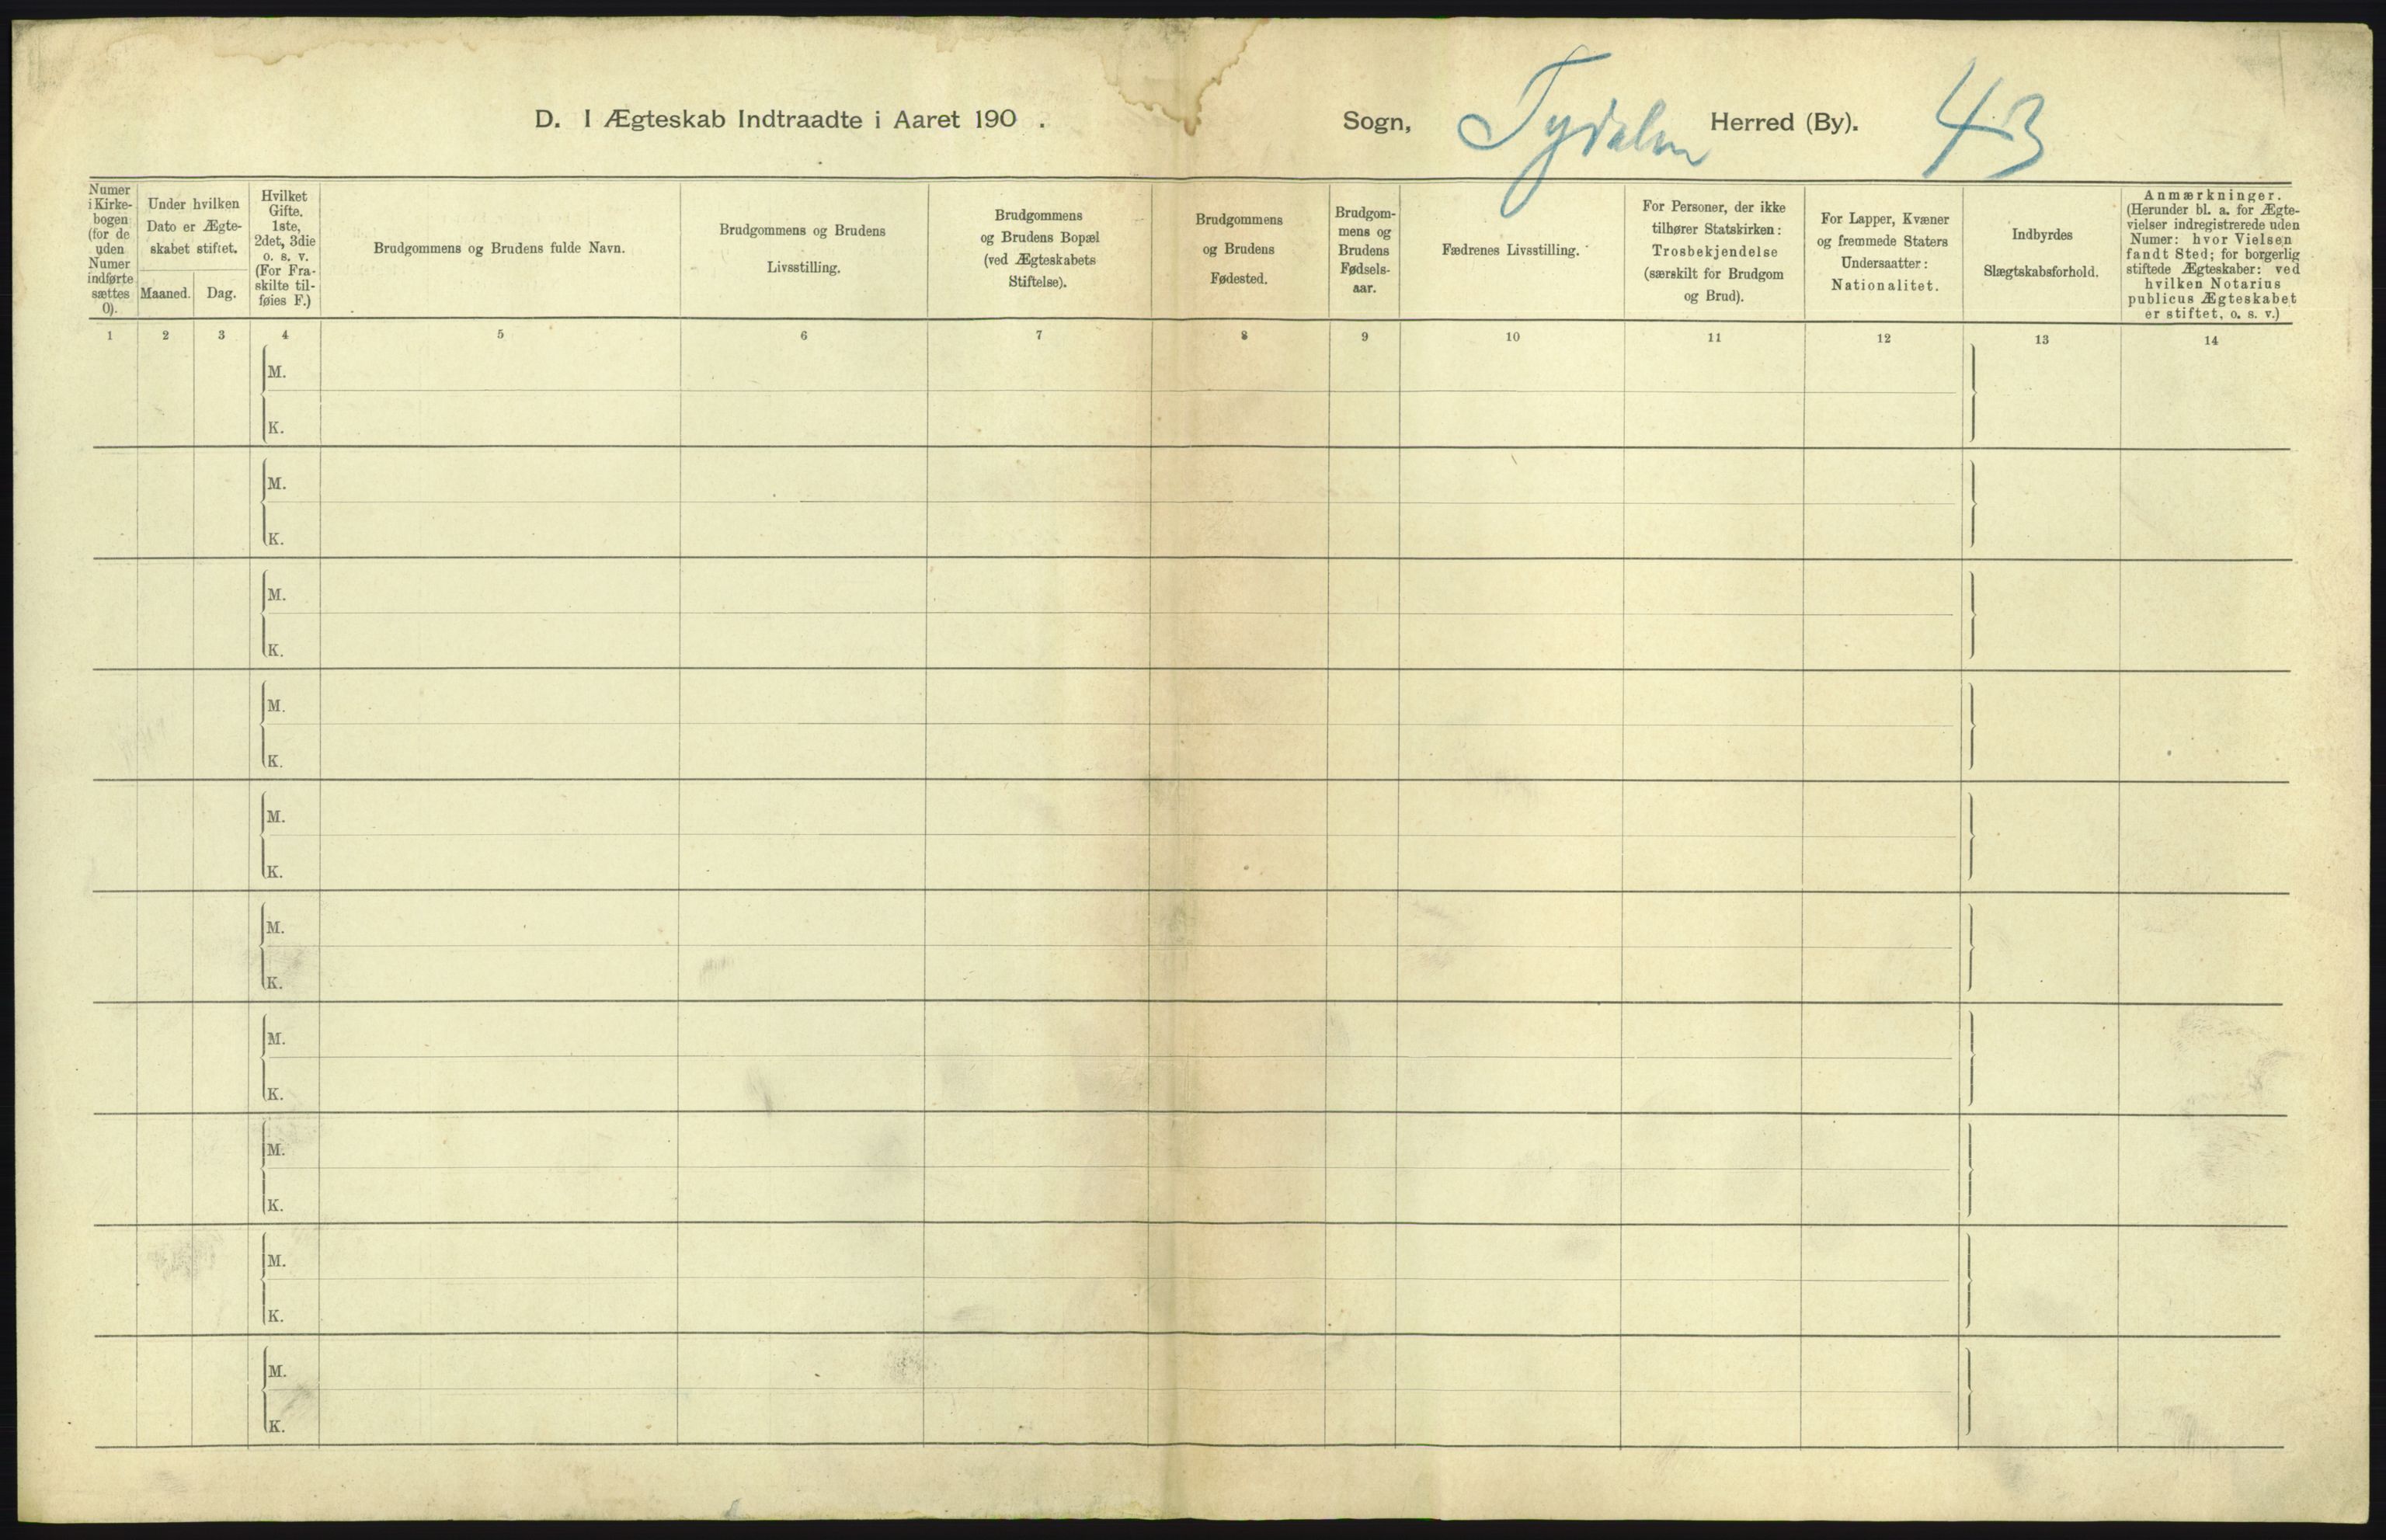 D. I Ægteskab Indtraadte i Aaret 190 . Sogn, Tydalen Herred (By). 43
Numer
i Kirke-
bogen
(for de
uden
Numer
indførte
sættes
0).
Under hvilken
Dato er Ægte-
skabet stiftet.
Maaned. Dag.
Hvilket
Gifte.
1ste,
2det, 3die
o. s. v.
(For Fra-
skilte til-
føies F.)
Brudgommens og Brudens fulde Navn.
Brudgommens og Brudens
Livsstilling.
Brudgommens
og Brudens Bopæl
(ved Ægteskabets
Stiftelse).
Brudgommens
og Brudens
Fødested.
Brudgom-
mens og
Brudens
Fødsels-
aar.
Fædrenes Livsstilling.
For Personer, der ikke
tilhører Statskirken:
Trosbekjendelse
(særskilt for Brudgom
og Brud).
For Lapper, Kvæner
og fremmede Staters
Undersaatter:
Nationalitet.
Indbyrdes
Slægtskabsforhold.
Anmærkninger.
(Herunder bl. a. for Ægte-
vielser indregistrerede uden
Numer: hvor Vielsen
fandt Sted; for borgerlig
stiftede Ægteskaber: ved
hvilken Notarius
publicus Ægteskabet
er stiftet, o. s. v.)
1 2 3 4 5 6 7 8 9 10 11 12 13 14
M.
K.
M.
K.
M.
K.
M.
K.
M.
K.
M.
K.
M.
K.
M.
K.
M.
K.
M.
K.